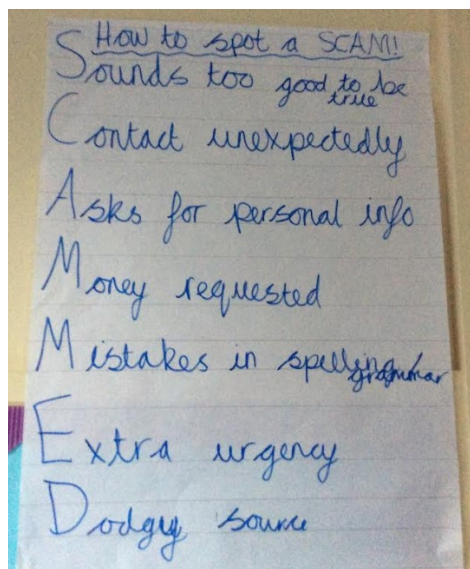 How to spot a SCAM!
Sounds too good to be true
Contact unexpectedly
Asks for personal info
Money requested
Mistakes in spelling/grammar
Extra urgency
Dodgy source